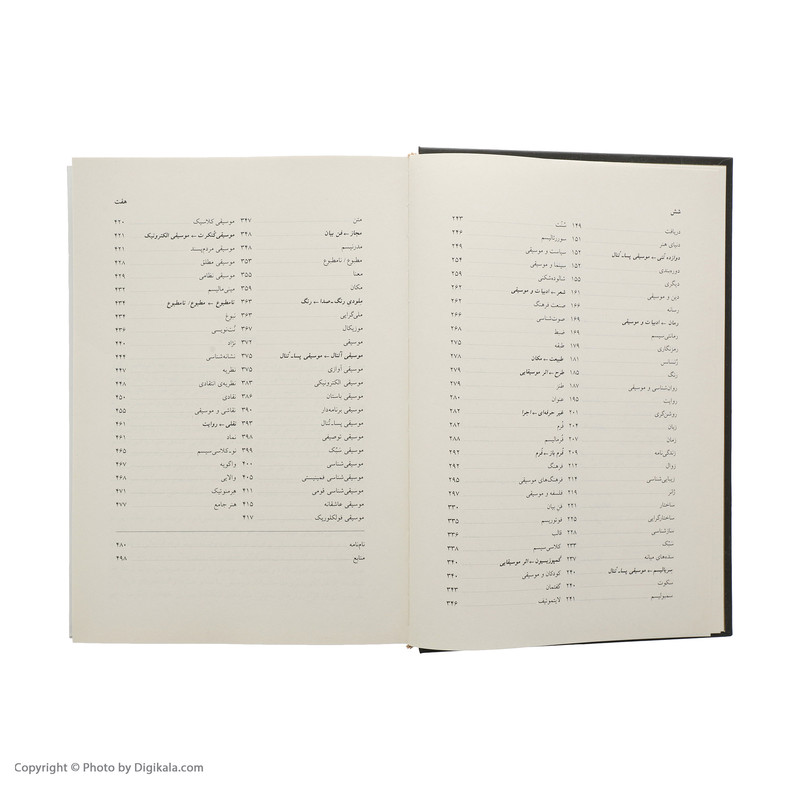 شش
دریافت ۱۴۹ سُنّت ۲۴۳
دنیای هنر ۱۵۱ سوررئالیسم ۲۴۶
دوازده تُنی ← موسیقی پساـ تُنال ۱۵۲ سیاست و موسیقی ۲۴۹
۱۵۲ سینما و موسیقی ۲۵۴
دیگری ۱۵۵ شالوده‌شکنی ۲۵۹
دین و موسیقی ۱۶۱ شعر ← ادبیات و موسیقی ۲۶۲
رسانه ۱۶۶ صنعت فرهنگ ۲۶۲
رمان ← ادبیات و موسیقی ۱۶۹ صوت‌شناسی ۲۶۶
رمانتی‌سیسم ۱۶۹ ضبط ۲۶۸
رمزنگاری ۱۷۹ طبقه ۲۷۵
رنسانس ۱۸۱ طبیعت ← مکان ۲۷۸
رنگ ۱۸۵ طرح ← اثر موسیقایی ۲۷۹
روان‌شناسی و موسیقی ۱۸۷ طنز ۲۷۹
روایت ۱۹۵ عنوان ۲۸۰
روشن‌گری ۲۰۱ غیر حرفه‌ای ← اجرا ۲۸۲
زبان ۲۰۴ فُرم ۲۸۲
زمان ۲۰۷ فُرمالیسم ۲۸۸
زندگی‌نامه ۲۰۹ فُرم باز ← فُرم ۲۹۲
زوال ۲۱۲ فرهنگ ۲۹۲
زیبایی‌شناسی ۲۱۴ فرهنگ‌های موسیقی ۲۹۵
ژانر ۲۱۹ فلسفه و موسیقی ۲۹۷
ساختار ۲۲۱ فن بیان ۳۳۰
ساختارگرایی ۲۲۵ فوتوریسم ۳۳۵
سازشناسی ۲۲۸ قالب ۳۳۶
سبْک ۲۳۳ کلاسی‌سیسم ۳۳۸
سده‌های میانه ۲۳۷ کمپوزیسیون ← اثر موسیقایی ۳۴۰
سریالیسم ← موسیقی پساـ تُنال ۲۴۰ کودکان و موسیقی ۳۴۰
سکوت ۲۴۰ گفتمان ۳۴۳
سمبولیسم ۲۴۱ لایتموتیف ۳۴۶
هفت
متن ۳۴۷ موسیقی کلاسیک ۴۲۰
مجاز ← فن بیان ۳۴۸ موسیقی کُنکرت ← موسیقی الکترونیک ۴۲۱
مدرنیسم ۳۴۸ موسیقی مردم‌پسند ۴۲۱
مطبوع / نامطبوع ۳۵۳ موسیقی مطلق ۴۲۸
معنا ۳۵۵ موسیقی نظامی ۴۲۹
مکان ۳۵۹ مینی‌مالیسم ۴۳۲
ملودی رنگ ـ صدا ← رنگ ۳۶۳ نامطبوع ← مطبوع / نامطبوع ۴۳۴
ملی‌گرایی ۳۶۳ نبوغ ۴۳۴
موزیکال ۳۶۷ نُت‌نویسی ۴۳۶
موسیقی ۳۷۲ نژاد ۴۴۰
موسیقی آتُنال ← موسیقی پساـ تُنال ۳۷۵ نشانه‌شناسی ۴۴۴
موسیقی آوازی ۳۷۵ نظریه ۴۴۷
موسیقی الکترونیکی ۳۸۳ نظریه‌ی انتقادی ۴۴۸
موسیقی باستان ۳۸۶ نقادی ۴۵۰
موسیقی برنامه‌دار ۳۹۰ نقاشی و موسیقی ۴۵۵
موسیقی پساـ تُنال ۳۹۳ نقلی ← روایت ۴۶۱
موسیقی توصیفی ۳۹۸ نماد ۴۶۱
موسیقی سَبُک ۳۹۹ نوـ کلاسی‌سیسم ۴۶۵
موسیقی‌شناسی ۴۰۰ واگویه ۴۶۷
موسیقی‌شناسی فمینیستی ۴۰۵ والایی ۴۶۸
موسیقی‌شناسی قومی ۴۱۱ هرمنوتیک ۴۷۱
موسیقی عاشقانه ۴۱۵ هنر جامع ۴۷۷
موسیقی فولکلوریک ۴۱۷
نام‌نامه ۴۸۰
منابع ۴۹۸
Copyright © Photo by Digikala.com